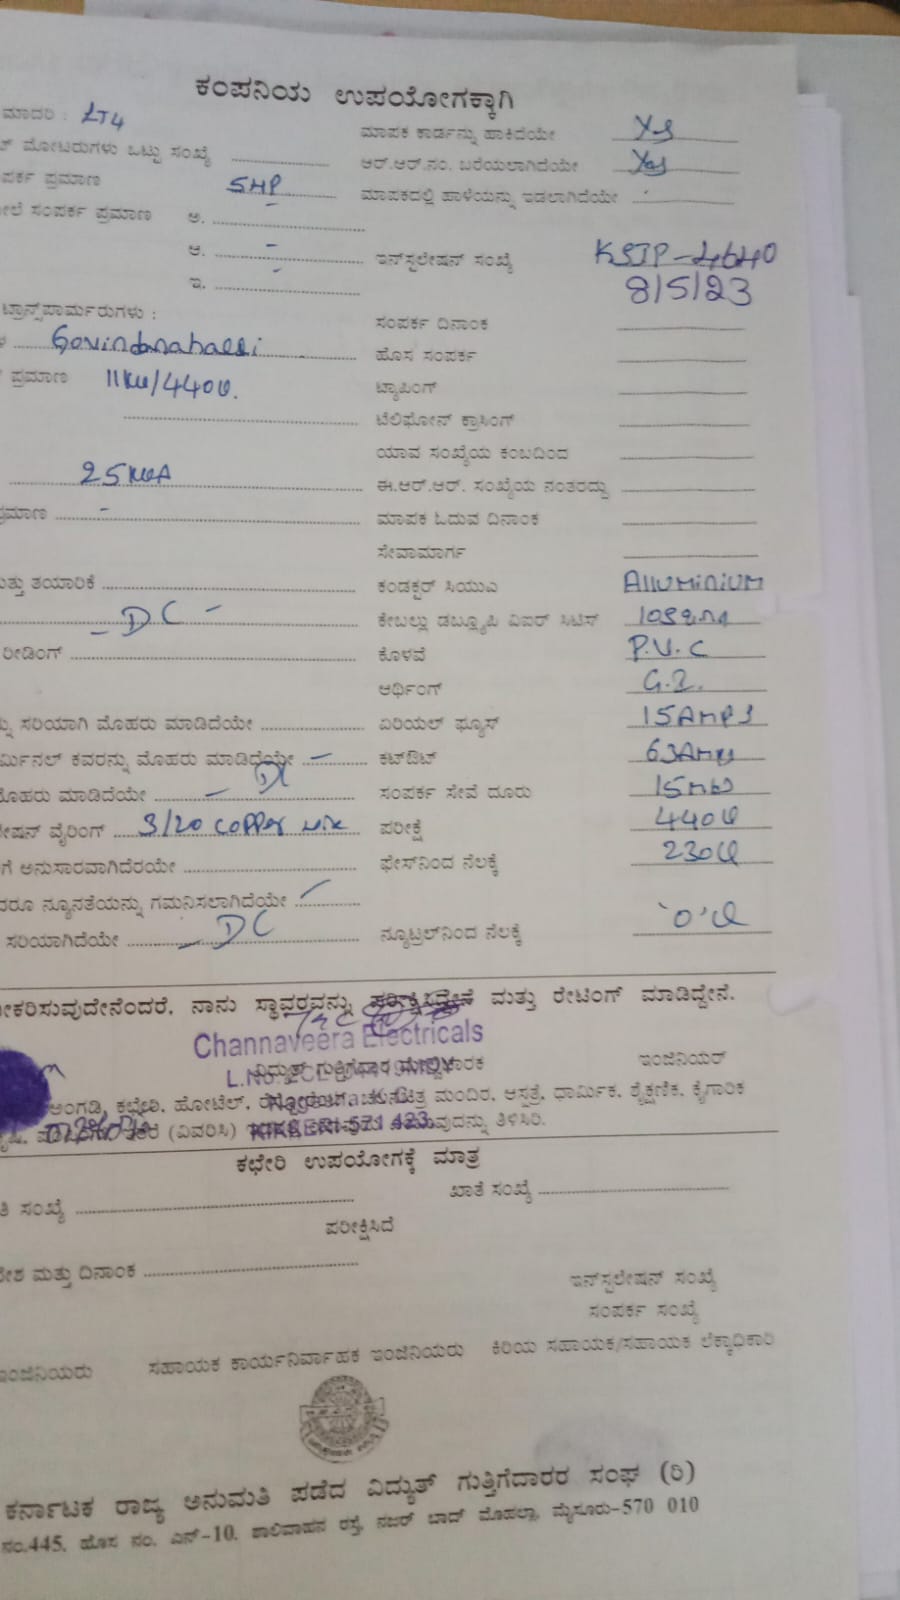 ಕಂಪನಿಯ ಉಪಯೋಗಕ್ಕಾಗಿ
ಮಾದರಿ : LT4
ಮಾಪಕ ಕಾರ್ಡನ್ನು ಹಾಕಿದೆಯೇ Yes
ಮೋಟರುಗಳು ಒಟ್ಟು ಸಂಖ್ಯೆ
ಆರ್.ಆರ್.ನಂ. ಬರೆಯಲಾಗಿದೆಯೇ Yes
ಪರ್ಕ ಪ್ರಮಾಣ 5HP
ಮಾಪಕದಲ್ಲಿ ಹಾಳೆಯನ್ನು ಇಡಲಾಗಿದೆಯೇ
ಲೆ ಸಂಪರ್ಕ ಪ್ರಮಾಣ ಅ.
ಆ. -
ಇನ್‌ಸ್ಟಲೇಷನ್ ಸಂಖ್ಯೆ KSIP-4640
ಇ. -
8/5/23
ಟ್ರಾನ್ಸ್‌ಫಾರ್ಮರುಗಳು :
ಸಂಪರ್ಕ ದಿನಾಂಕ
Govindanahalli
ಹೊಸ ಸಂಪರ್ಕ
ಪ್ರಮಾಣ 11KV/440V.
ಟ್ಯಾಪಿಂಗ್
ಟೆಲಿಫೋನ್ ಕ್ರಾಸಿಂಗ್
ಯಾವ ಸಂಖ್ಯೆಯ ಕಂಬದಿಂದ
25KVA
ಈ.ಆರ್.ಆರ್. ಸಂಖ್ಯೆಯ ನಂತರದ್ದು
ಪ್ರಮಾಣ -
ಮಾಪಕ ಓದುವ ದಿನಾಂಕ
ಸೇವಾಮಾರ್ಗ
ಮತ್ತು ತಯಾರಿಕೆ
ಕಂಡಕ್ಟರ್ ಸಿಯುಎ ALLUMINIUM
- DC -
ಕೇಬಲ್ಲು ಡಬ್ಲ್ಯೂಪಿ ವಿಐರ್ ಸಿಟಿಸ್
ರೀಡಿಂಗ್
ಕೊಳವೆ P.V.C
ಆರ್ಥಿಂಗ್ G.I.
ಸರಿಯಾಗಿ ಮೊಹರು ಮಾಡಿದೆಯೇ
ಏರಿಯಲ್ ಫ್ಯೂಸ್ 15AMPS
ರ್ಮಿನಲ್ ಕವರನ್ನು ಮೊಹರು ಮಾಡಿದೆಯೇ -
ಕಟ್‌ಔಟ್ 63AMPS
ಮೊಹರು ಮಾಡಿದೆಯೇ - DC
ಸಂಪರ್ಕ ಸೇವೆ ದೂರು 15
ಷನ್ ವೈರಿಂಗ್ 3/20 copper wire
ಪರೀಕ್ಷೆ 440V
ಗೆ ಅನುಸಾರವಾಗಿದೆರಯೇ
ಫೇಸ್‌ನಿಂದ ನೆಲಕ್ಕೆ 230V
ದರೂ ನ್ಯೂನತೆಯನ್ನು ಗಮನಿಸಲಾಗಿದೆಯೇ
ಸರಿಯಾಗಿದೆಯೇ - DC
ನ್ಯೂಟ್ರಲ್‌ನಿಂದ ನೆಲಕ್ಕೆ 'O'V
ಕರಿಸುವುದೇನೆಂದರೆ, ನಾನು ಸ್ಥಾವರವನ್ನು ಪರೀಕ್ಷಿಸಿದ್ದೇನೆ ಮತ್ತು ರೇಟಿಂಗ್ ಮಾಡಿದ್ದೇನೆ.
Channaveera Electricals
ವಿದ್ಯುತ್ ಗುತ್ತಿಗೆದಾರ ಮೇಲ್ವಿಚಾರಕ ಇಂಜಿನಿಯರ್
L.No.
Nagesha K.C
ಅಂಗಡಿ, ಕಛೇರಿ, ಹೋಟೆಲ್, ಮಂದಿರ, ಆಸ್ಪತ್ರೆ, ಧಾರ್ಮಿಕ, ಶೈಕ್ಷಣಿಕ, ಕೈಗಾರಿಕ
KIKKERI-571 423
(ವಿವರಿಸಿ) ಎಂಬುವುದನ್ನು ತಿಳಿಸಿರಿ.
ಕಛೇರಿ ಉಪಯೋಗಕ್ಕೆ ಮಾತ್ರ
ತಿ ಸಂಖ್ಯೆ
ಖಾತೆ ಸಂಖ್ಯೆ
ಪರೀಕ್ಷಿಸಿದೆ
ದೇಶ ಮತ್ತು ದಿನಾಂಕ
ಇನ್‌ಸ್ಟಲೇಷನ್ ಸಂಖ್ಯೆ
ಸಂಪರ್ಕ ಸಂಖ್ಯೆ
ಇಂಜಿನಿಯರು ಸಹಾಯಕ ಕಾರ್ಯನಿರ್ವಾಹಕ ಇಂಜಿನಿಯರು ಕಿರಿಯ ಸಹಾಯಕ/ಸಹಾಯಕ ಲೆಕ್ಕಾಧಿಕಾರಿ
ಕರ್ನಾಟಕ ರಾಜ್ಯ ಅನುಮತಿ ಪಡೆದ ವಿದ್ಯುತ್ ಗುತ್ತಿಗೆದಾರರ ಸಂಘ (ರಿ)
ನಂ.445, ಹೊಸ ನಂ. ಎನ್-10, ಶಾಲಿವಾಹನ ರಸ್ತೆ, ನಜರ್ ಬಾದ್ ಮೊಹಲ್ಲಾ, ಮೈಸೂರು-570 010